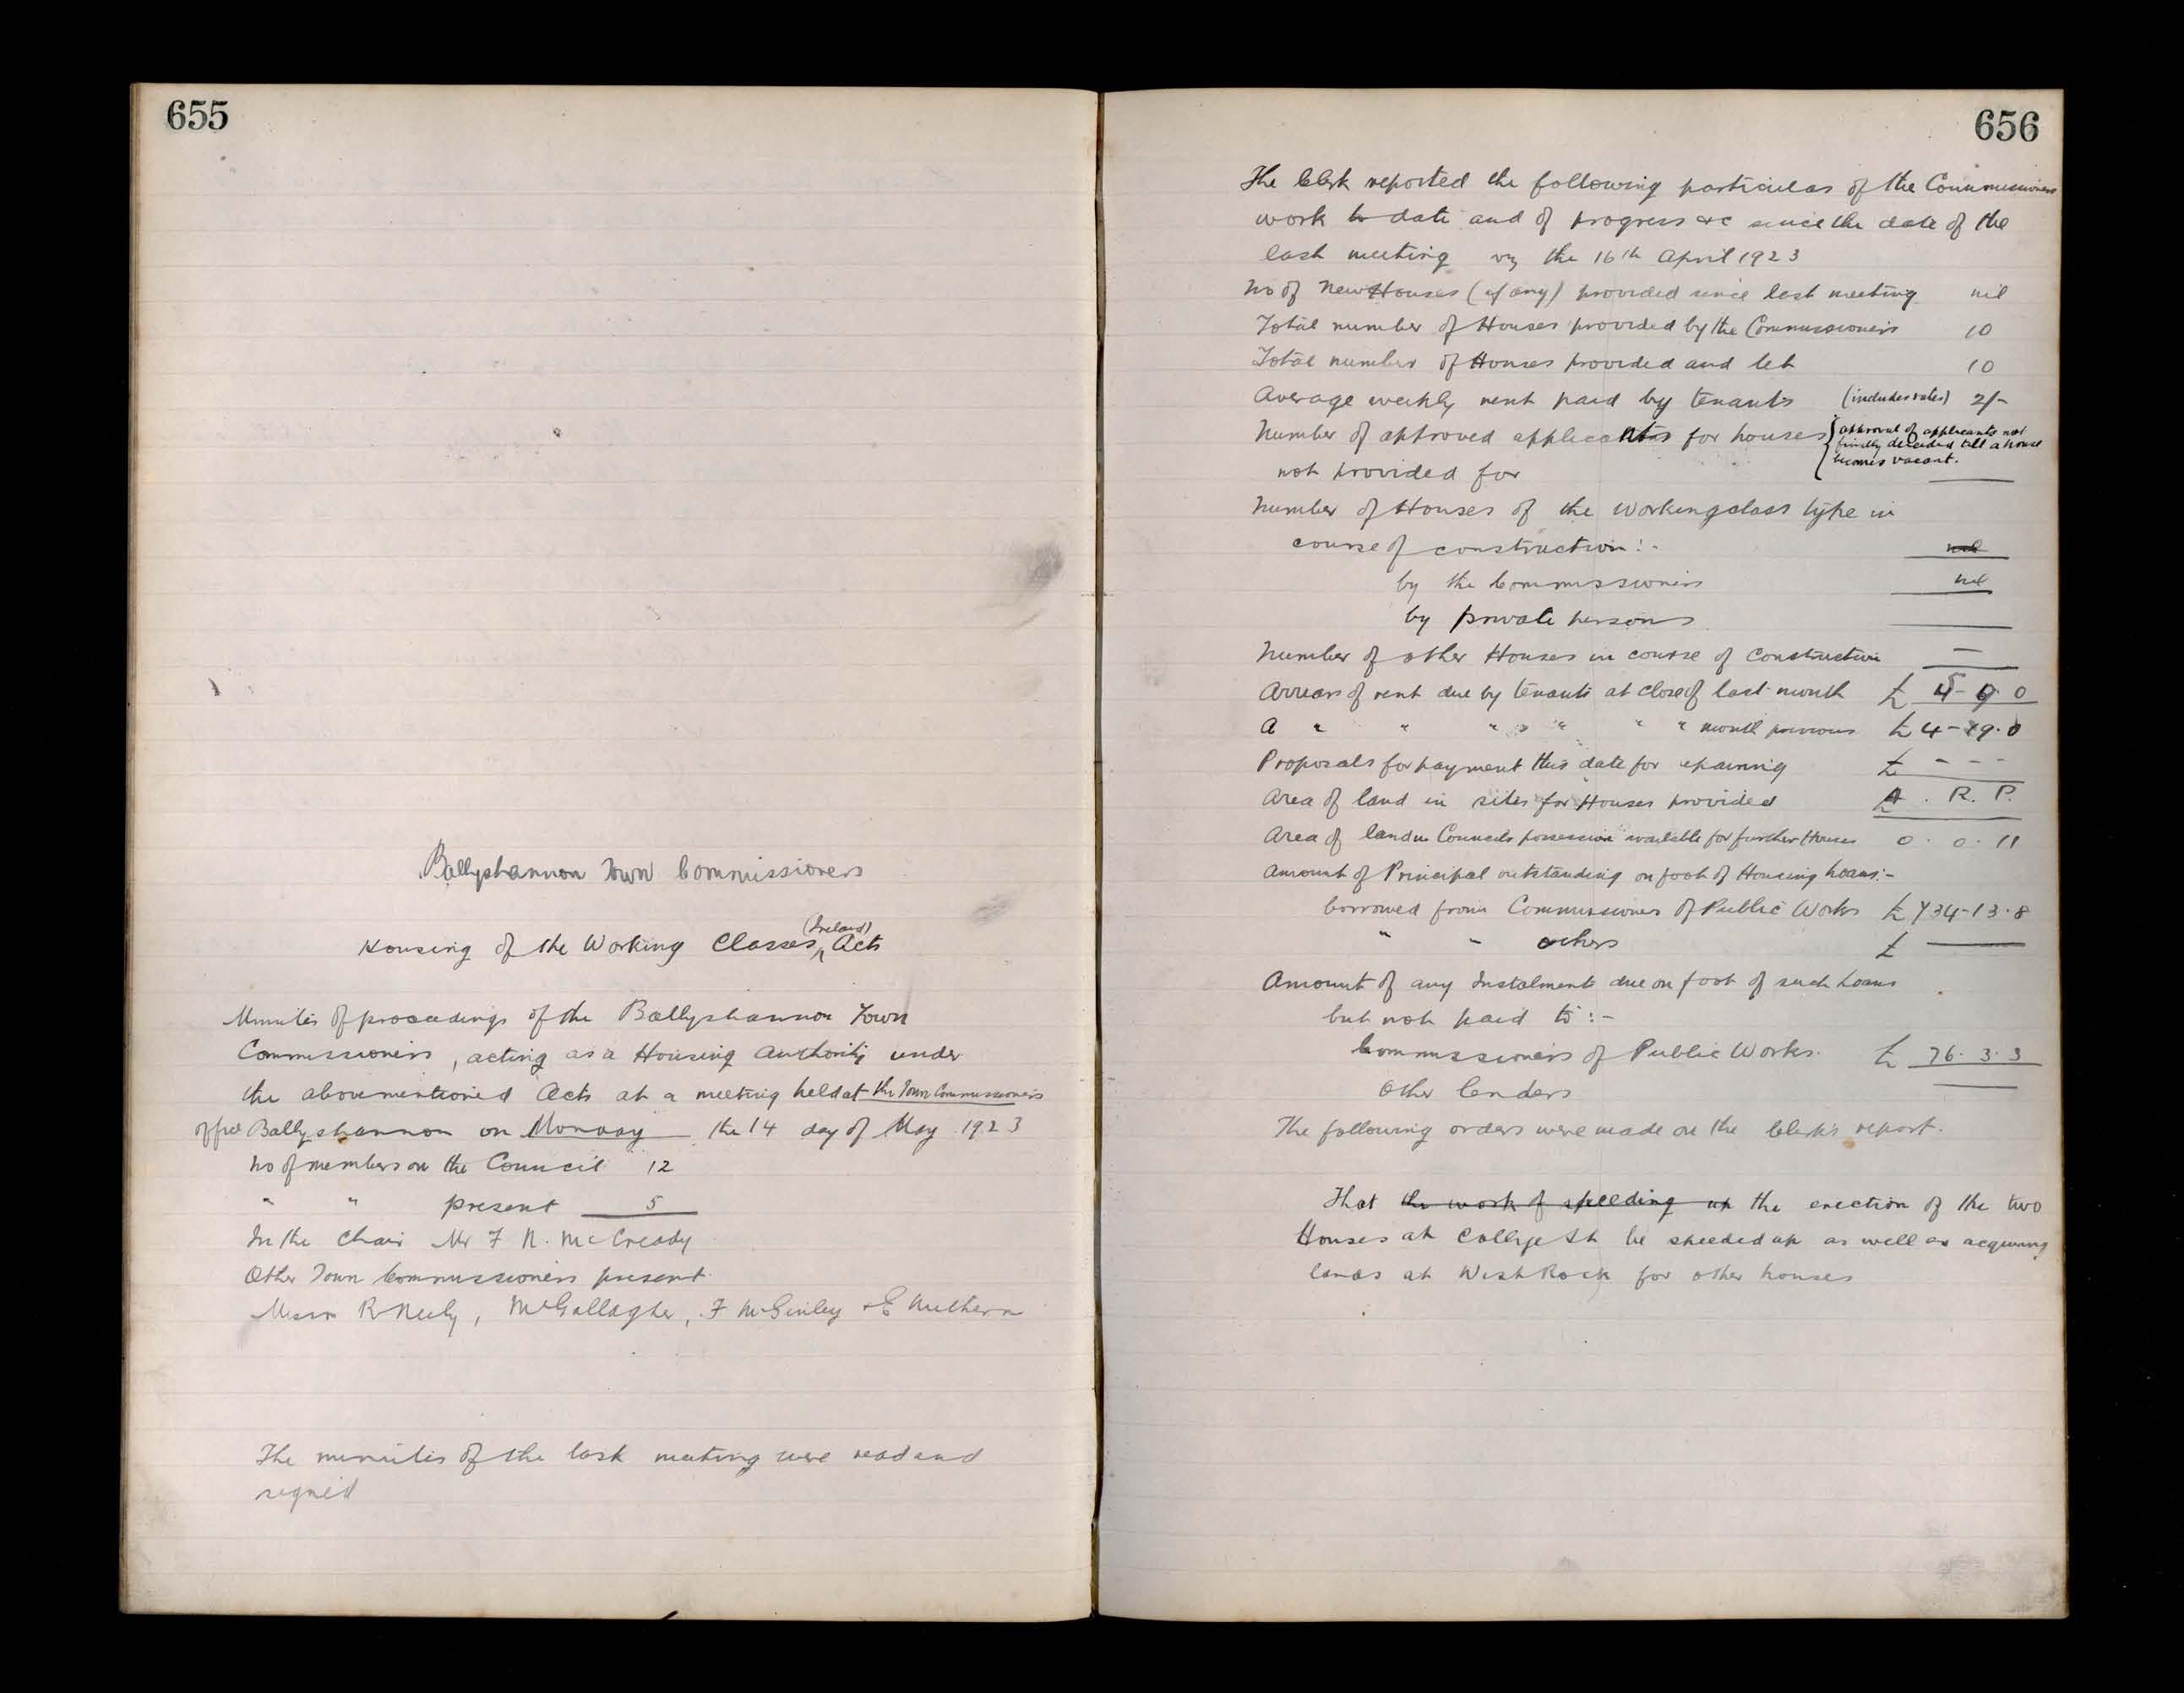 655
Ballyshannon Town Commissioners
(Ireland)
Housing of the Working Classes Acts
Minutes of proceedings of the Ballyshannon Town
Commissioners, acting as a Housing Authority under
the abovementioned Acts at a meeting held at the Town Commissioners
office Ballyshannon on Monday the 14 day of May 1923
No of members on the Council 12
" " present 5
In the Chair Mr F N. McCready
Other Town Commissioners present
Messrs R Neely, McGallagher, F McGinley & E
The minutes of the last meeting were read and
signed
656
The Clerk reported the following particulars of the Commissioners
work to date and of progress &c since the date of the
last meeting viz the 16th April 1923
No of New Houses (if any) provided since last meeting nil
Total number of Houses provided by the Commissioners 10
Total number of Houses provided and let 10
Average weekly rent paid by tenants (includes rates) 2/-
Number of approved applicants for houses { approval of applicants not
finally decided till a house
becomes vacant.
not provided for
Number of Houses of the Workingclass type in
course of construction:- nil
by the Commissioners nil
by private persons
Number of other Houses in course of Construction —
Arrears of rent due by tenants at close of last month £
A " " " " " " " month previous £ 4-19.0
Proposals for payment this date for repairing £ - - -
Area of land in sites for Houses provided A. R. P.
Area of land in Councils possession available for further Houses 0. 0. 11
Amount of Principal outstanding on foot of Housing Loans:-
borrowed from Commissioners of Public Works £734-13.8
" " others £ —
Amount of any Instalments due on foot of such Loans
but not paid to:-
Commissioners of Public Works. £ 76. 3. 3
Other lenders —
The following orders were made on the Clerk's report.
That the work of speeding up the erection of the two
Houses at College St be speeded up as well as acquiring
lands at West Rock for other houses